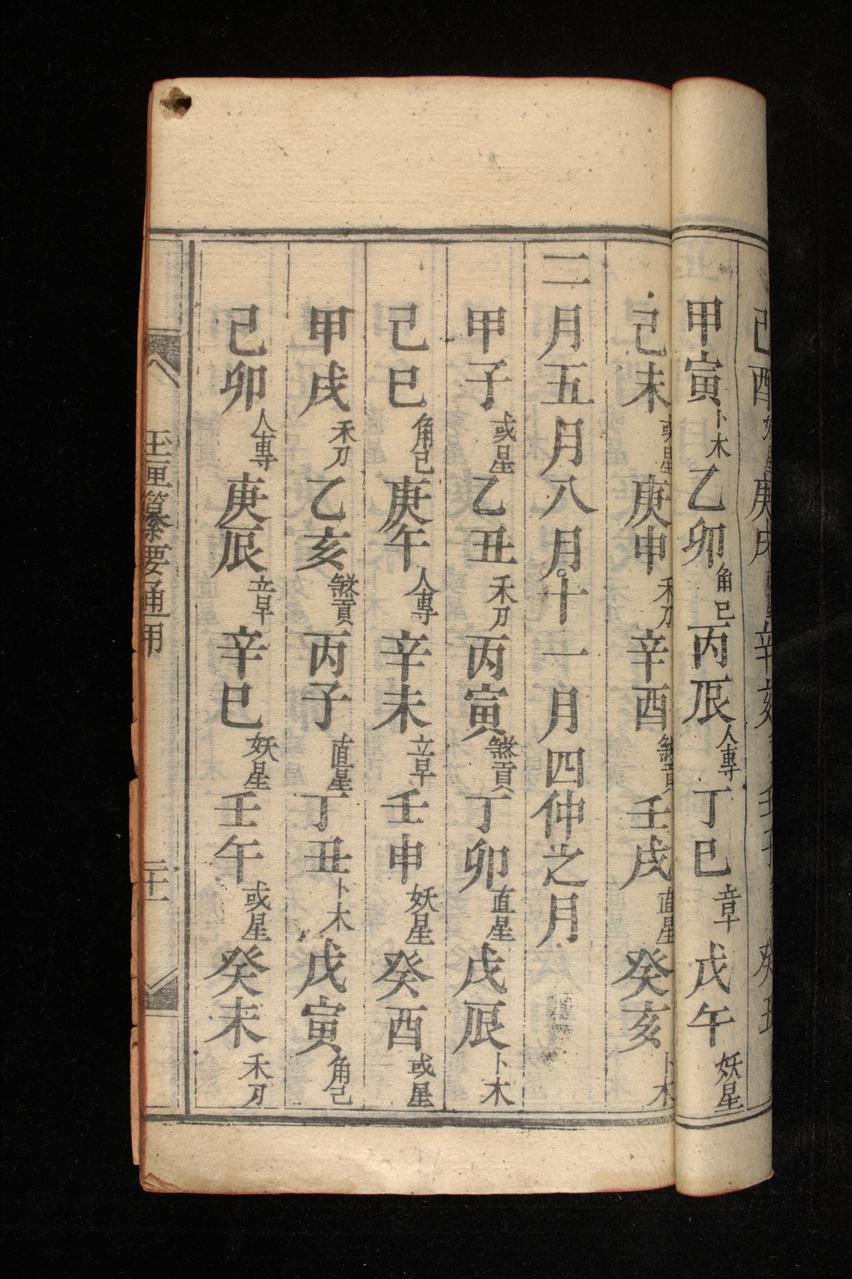 己酉妖星庚戌辛亥壬子癸丑
甲寅卜木乙卯角己丙辰人專丁巳立早戊午妖星
己未或星庚申禾刀辛酉煞貢壬戌直星癸亥卜木
二月五月八月十一月四仲之月
甲子或星乙丑禾刀丙寅煞貢丁卯直星戊辰卜木
己巳角己庚午人專辛未立早壬申妖星癸酉或星
甲戌禾刀乙亥煞貢丙子直星丁丑卜木戊寅角己
己卯人專庚辰立早辛巳妖星壬午或星癸未禾刀
玉匣纂要通用
二十一